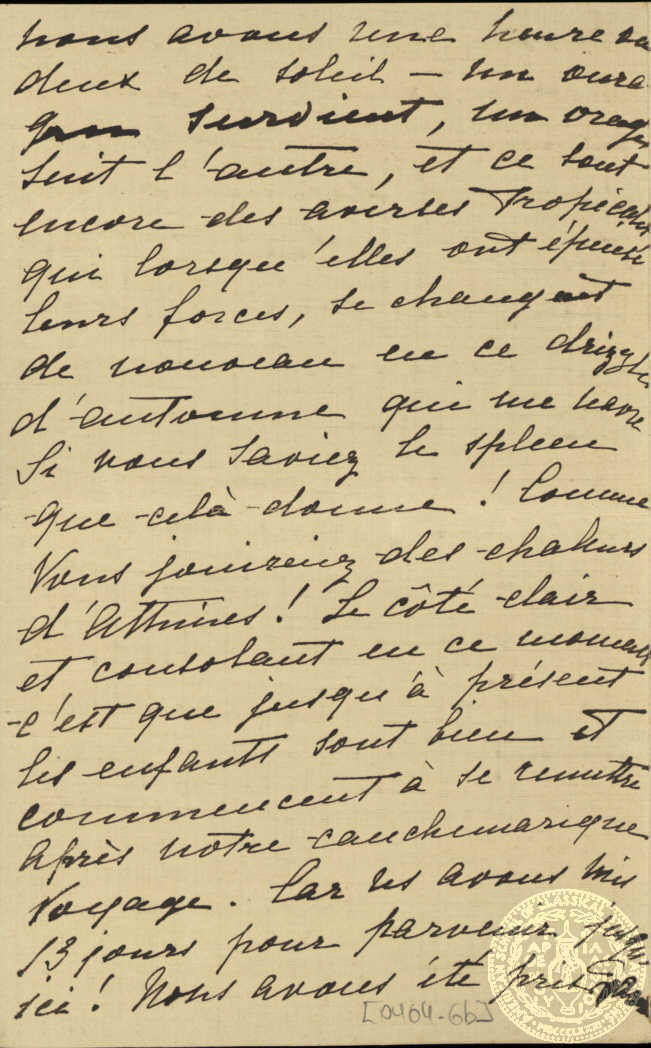 nous avons une heure ou
deux de soleil — un orage
survient, un orage
suit l'autre, et ce sont
encore des averses tropicales
qui lorsqu'elles ont épuisé
leurs forces, se changent
de nouveau en ce drizzle
d'automne qui me navre
Si vous saviez le spleen
que celà donne! Comme
Vous jouireiez des chaleurs
d'Athènes! Le côté clair
et consolant en ce moment
c'est que jusqu'à présent
les enfants sont bien et
commencent à se remettre
après notre cauchemarique
voyage. Car ns avons mis
13 jours pour parvenir jusqu'
ici! Nous avons été pris par
[0404-6b]